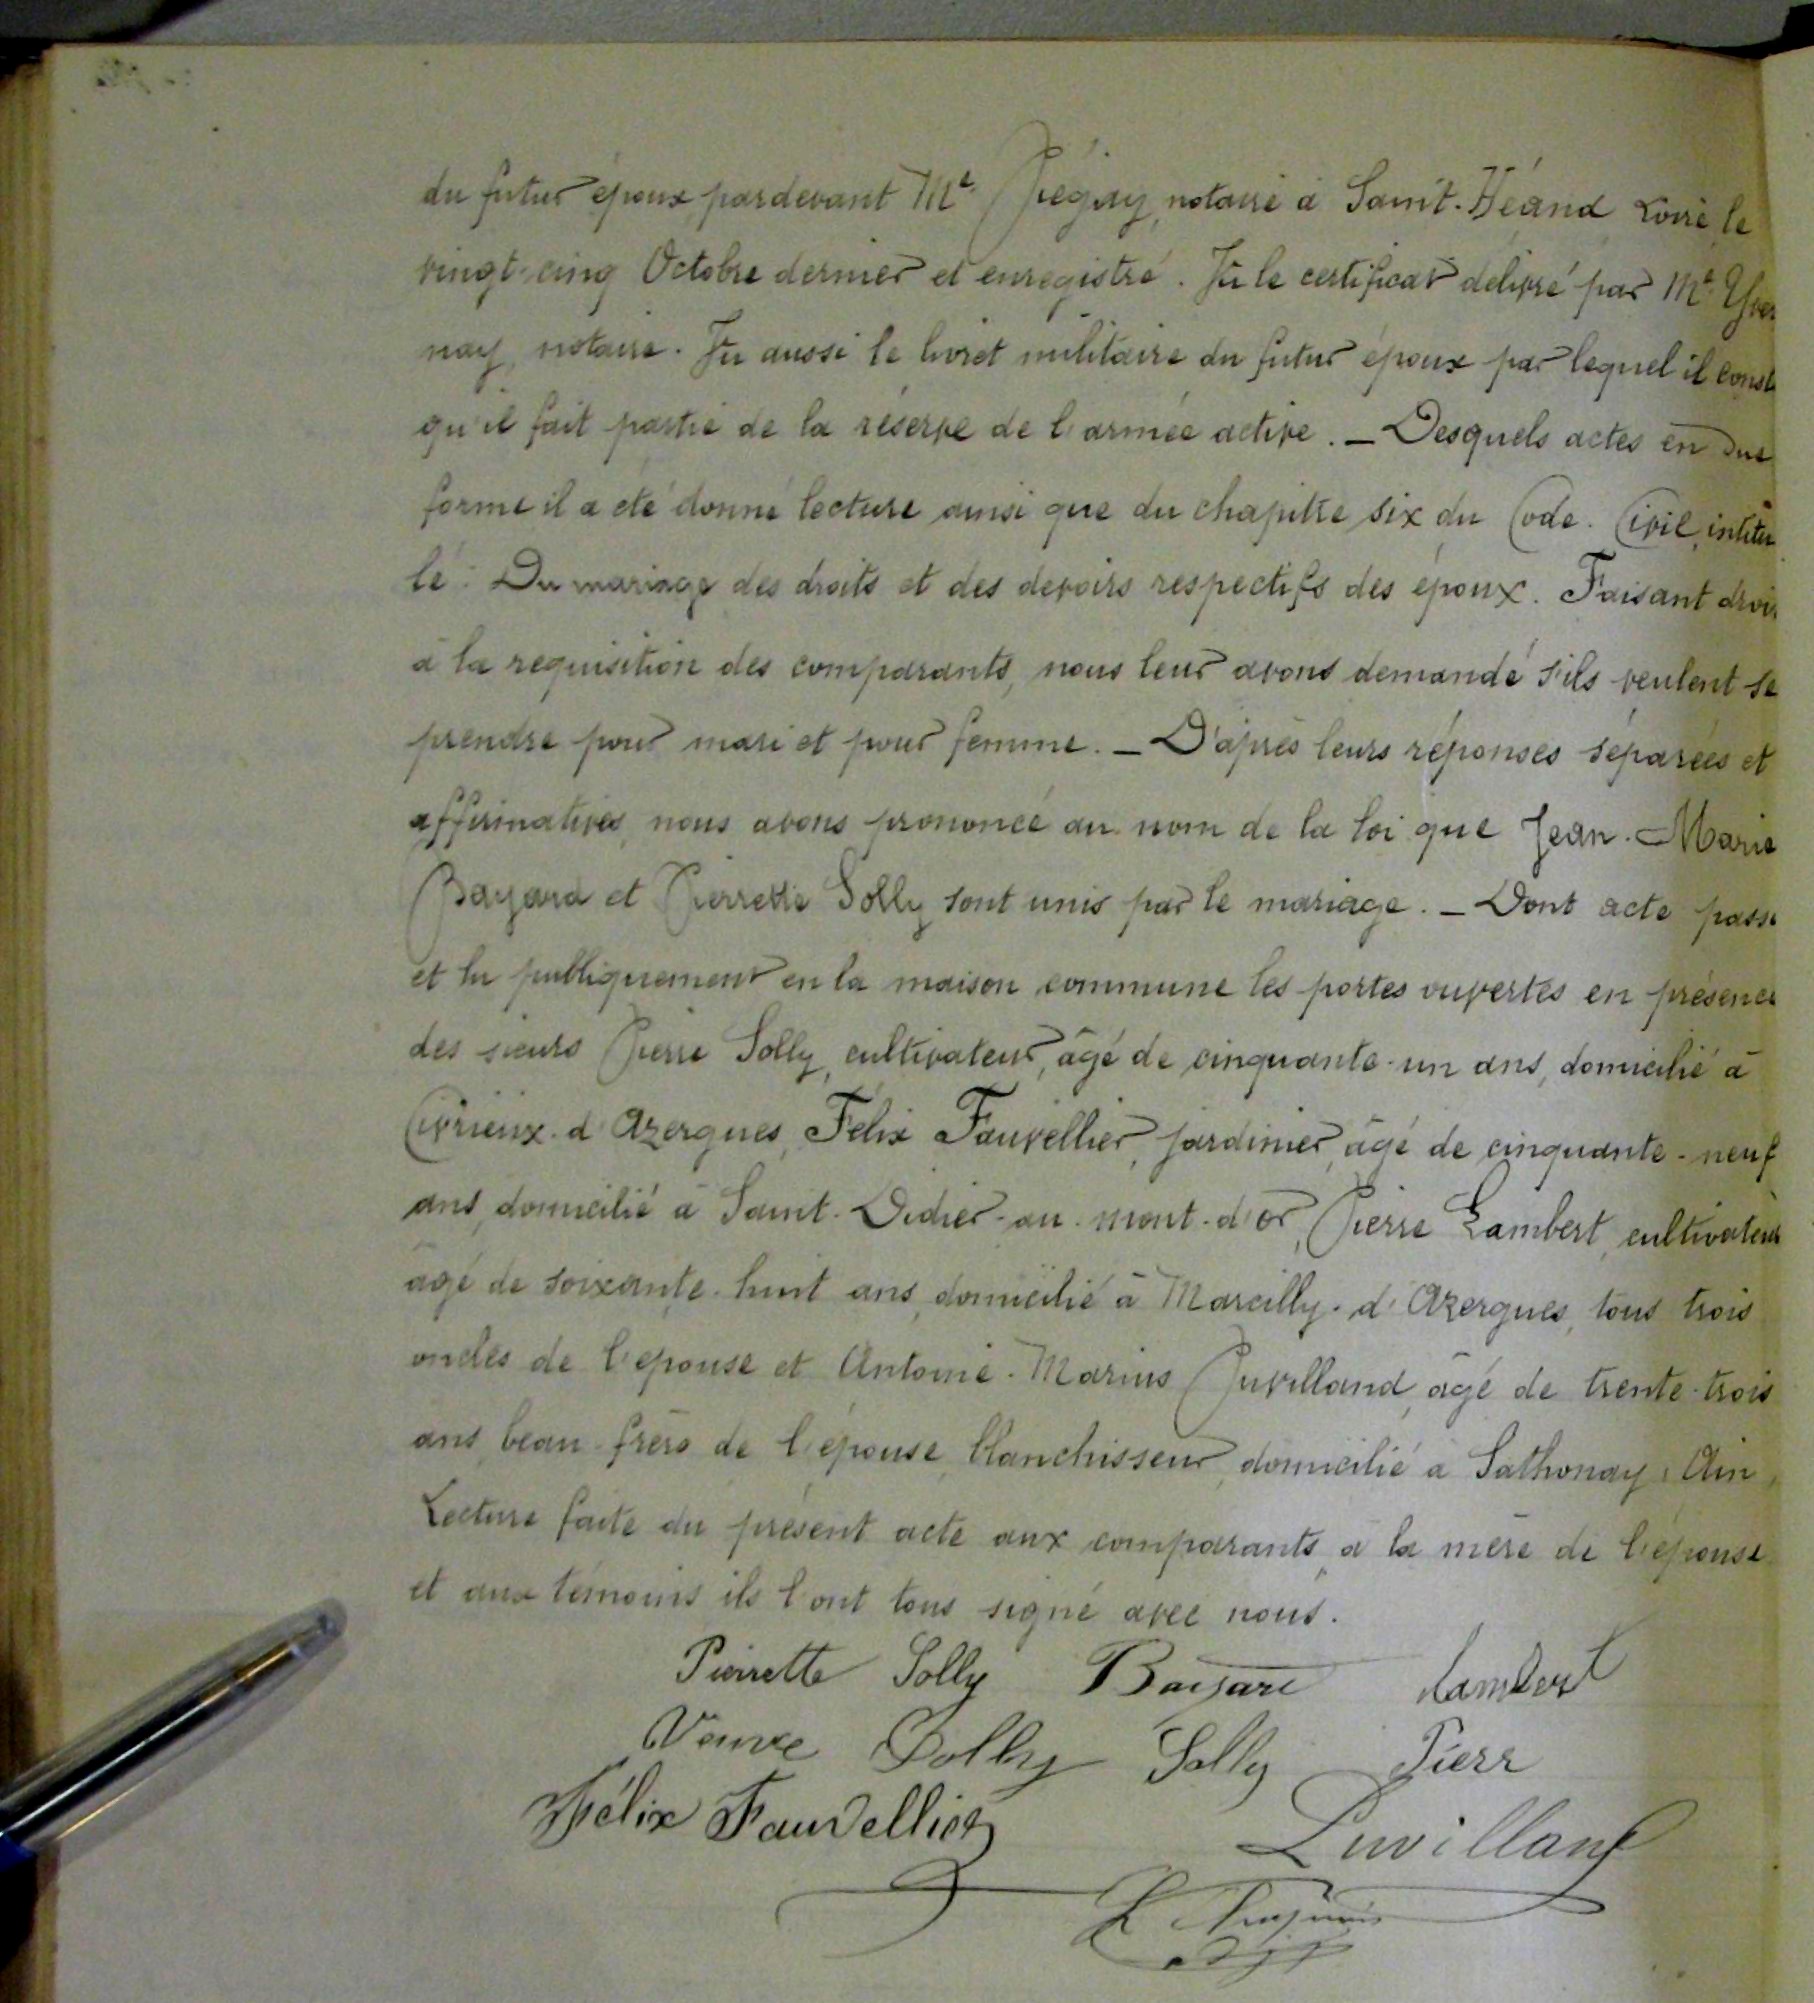 du futur époux pardevant Mᵉ Prégay, notaire à Saint-Héand Loire, le
vingt-cinq Octobre dernier et enregistré. Vu le certificat délivré par Mᵉ Yver
nay, notaire. Vu aussi le livret militaire du futur époux par lequel il conste
qu'il fait partie de la réserve de l'armée active. — Desquels actes en due
forme il a été donné lecture ainsi que du chapitre six du Code. Civil, intitu
lé: Du mariage des droits et des devoirs respectifs des époux. Faisant droit
à la requisition des comparants, nous leur avons demandé s'ils veulent se
prendre pour mari et pour femme. — D'après leurs réponses séparées et
affirmatives, nous avons prononcé au nom de la loi que Jean-Marie
Bayard et Pierrette Solly sont unis par le mariage. — Dont acte passé
et lu publiquement en la maison commune les portes ouvertes en présence
des sieurs Pierre Solly, cultivateur, âgé de cinquante-un ans, domicilié à
Civrieux-d'Azergues, Félix Fauvellier, jardinier, âgé de cinquante-neuf
ans, domicilié à Saint-Didier-au-mont-d'or, Pierre Lambert, cultivateur
âgé de soixante-huit ans, domicilié à Marcilly-d'Azergues, tous trois
oncles de l'épouse et Antoine-Marius Puvilland, âgé de trente-trois
ans, beau-frère de l'épouse, blanchisseur, domicilié à Sathonay, Ain,
Lecture faite du présent acte aux comparants, à la mère de l'épouse
et aux témoins ils l'ont tous signé avec nous.
Pierrette Solly Bayard Lambert
Veuve Solly Solly Pierr
Félix Fauvellier
Puvilland